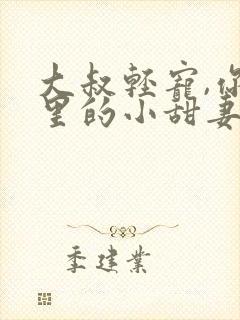 大叔輕寵,你
里的小甜妻
季建業